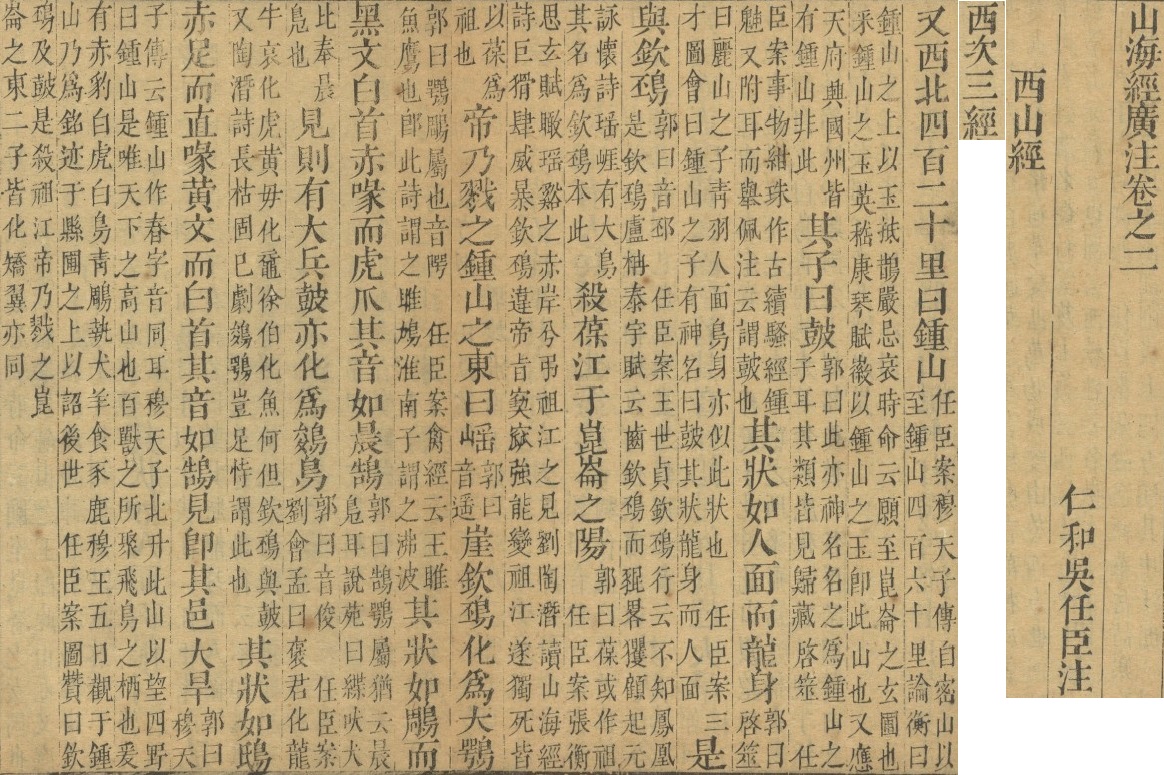 山海經廣注卷之二
仁和吳任臣注
西山經
西次三經
又西北四百二十里曰鍾山
任臣案穆天子傳自密山以
至鍾山四百六十里論衡曰
鍾山之上以玉抵鵲嚴忌哀時命云願至崑崙之玄圃也
釆鍾山之玉英嵇康琴賦徽以鍾山之玉卽此山也又應
天府興國州皆
有鍾山非此
其子曰鼓
郭曰此亦神名名之爲鍾山之
子耳其類皆見歸藏啓筮 任
臣案事物紺珠作古續騷經鍾
魁又附耳而舉佩注云謂鼓也
其狀如人面而龍身
郭曰
啓筮
曰麗山之子靑羽人面鳥身亦似此狀也 任臣案三
才圖會曰鍾山之子有神名曰鼓其狀龍身而人面
是
與欽䲹
郭曰音邳 任臣案王世貞欽䲹行云不知鳳凰
是欽䲹盧柟泰宇賦云齒欽䲹而猩畧玃顧起元
詠懷詩瑶崕有大鳥
其名爲欽䲹本此
殺葆江于崑崙之陽
郭曰葆或作祖
任臣案張衡
思玄賦瞰瑶谿之赤岸兮弔祖江之見劉陶潛讀山海經
詩巨猾肆威暴欽䲹違帝旨窫窳強能變祖江遂獨死皆
以葆爲
祖也
帝乃戮之鍾山之東曰㟴
郭曰
音遥
崖欽䲹化爲大鶚
郭曰鶚鵰屬也音愕 任臣案禽經云王雎
魚鷹也郎此詩謂之雎鳩淮南子謂之沸波
其狀如鵰而
黑文白首赤喙而虎爪其音如晨鵠
郭曰鵠鶚屬猶云晨
鳬耳說苑曰緤吠犬
比奉晨
鳬也
見則有大兵鼓亦化爲鵕鳥
郭曰音俊 任臣案
劉會孟曰褒君化龍
牛哀化虎黃毋化黿徐伯化魚何但欽䲹與鼓
又陶潛詩長枯固巳劇鵕鶚豈足恃謂此也
其狀如鴟
赤足而直喙黃文而白首其音如鵠見卽其邑大旱
郭曰
穆天
子傳云鍾山作春字音同耳穆天子北升此山以望四野
曰鍾山是唯天下之高山也百獸之所聚飛鳥之栖也爰
有赤豹白虎白鳥靑鵰執犬羊食豕鹿穆王五日觀于鍾
山乃爲銘迹于縣圃之上以詔後世 任臣案圖贊曰欽
䲹及鼓是殺祖江帝乃戮之崑
崙之東二子皆化矯翼亦同